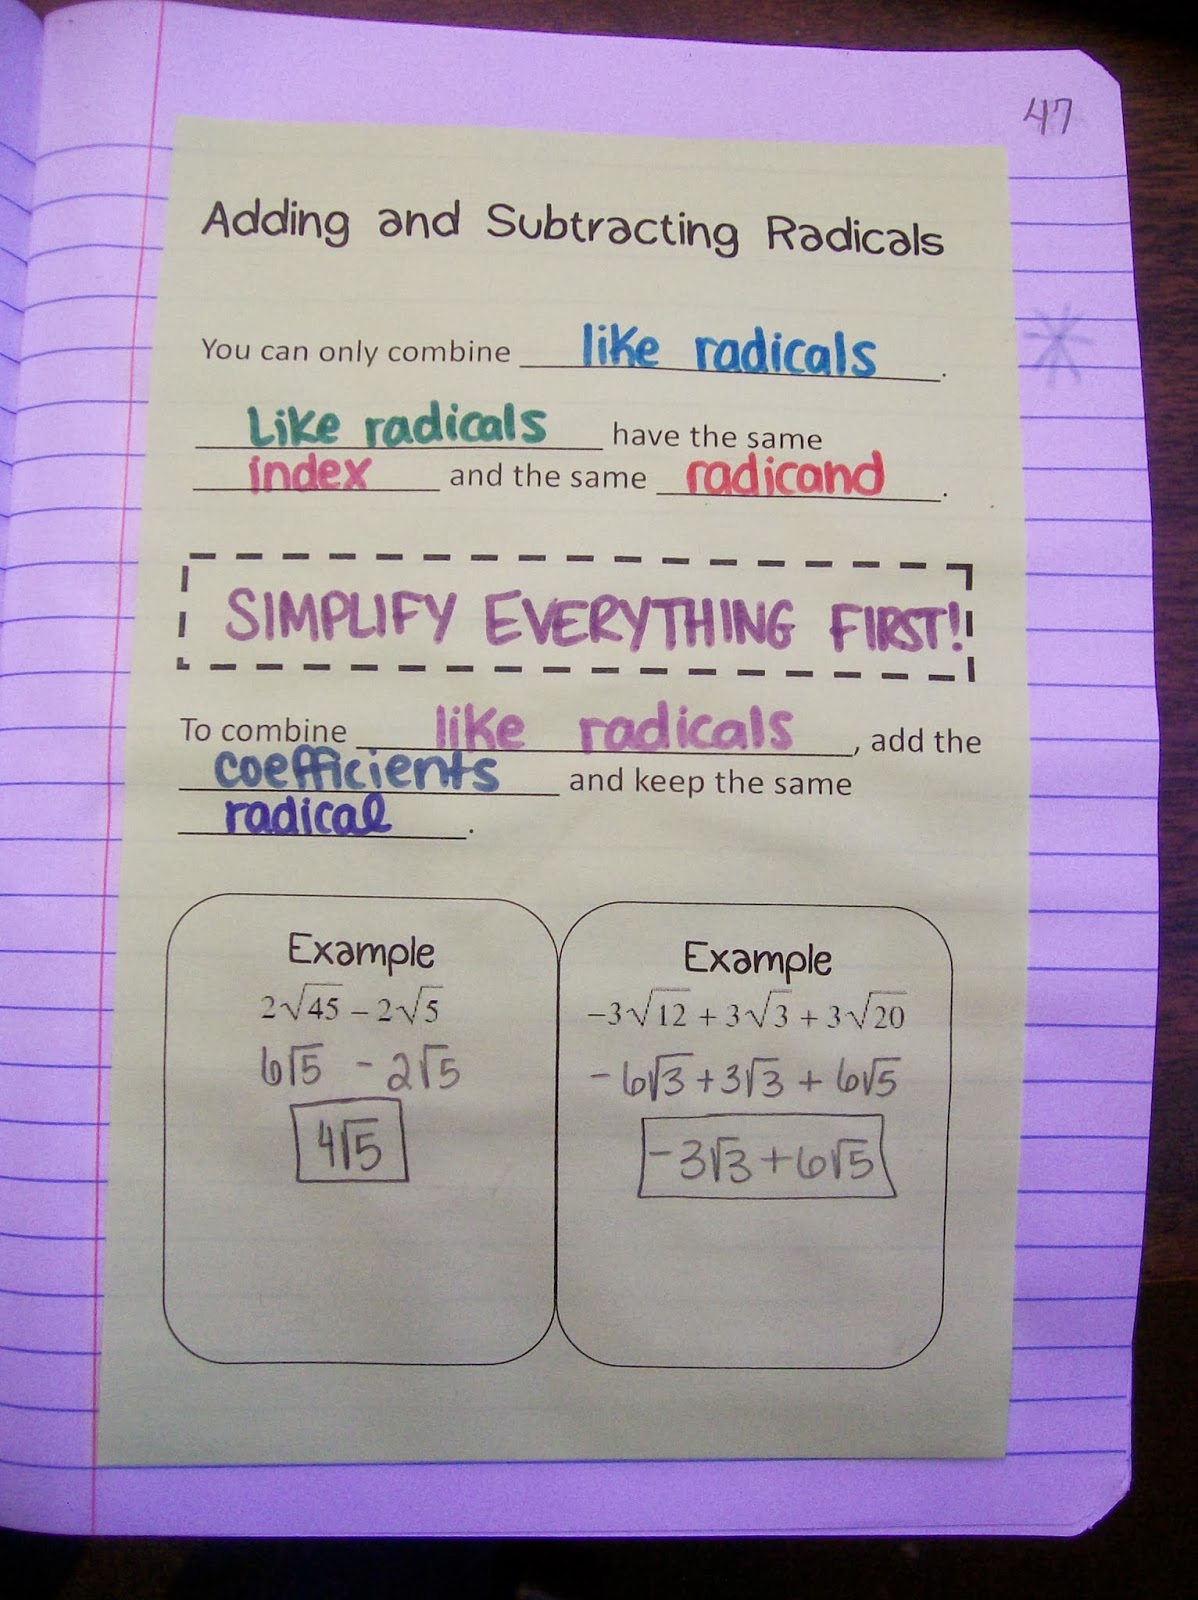 47
Adding and Subtracting Radicals
You can only combine like radicals.
Like radicals have the same
index and the same radicand.
SIMPLIFY EVERYTHING FIRST!
To combine like radicals, add the
coefficients and keep the same
radical.
Example
2√45 − 2√5
6√5 - 2√5
4√5
Example
−3√12 + 3√3 + 3√20
-6√3 + 3√3 + 6√5
-3√3 + 6√5